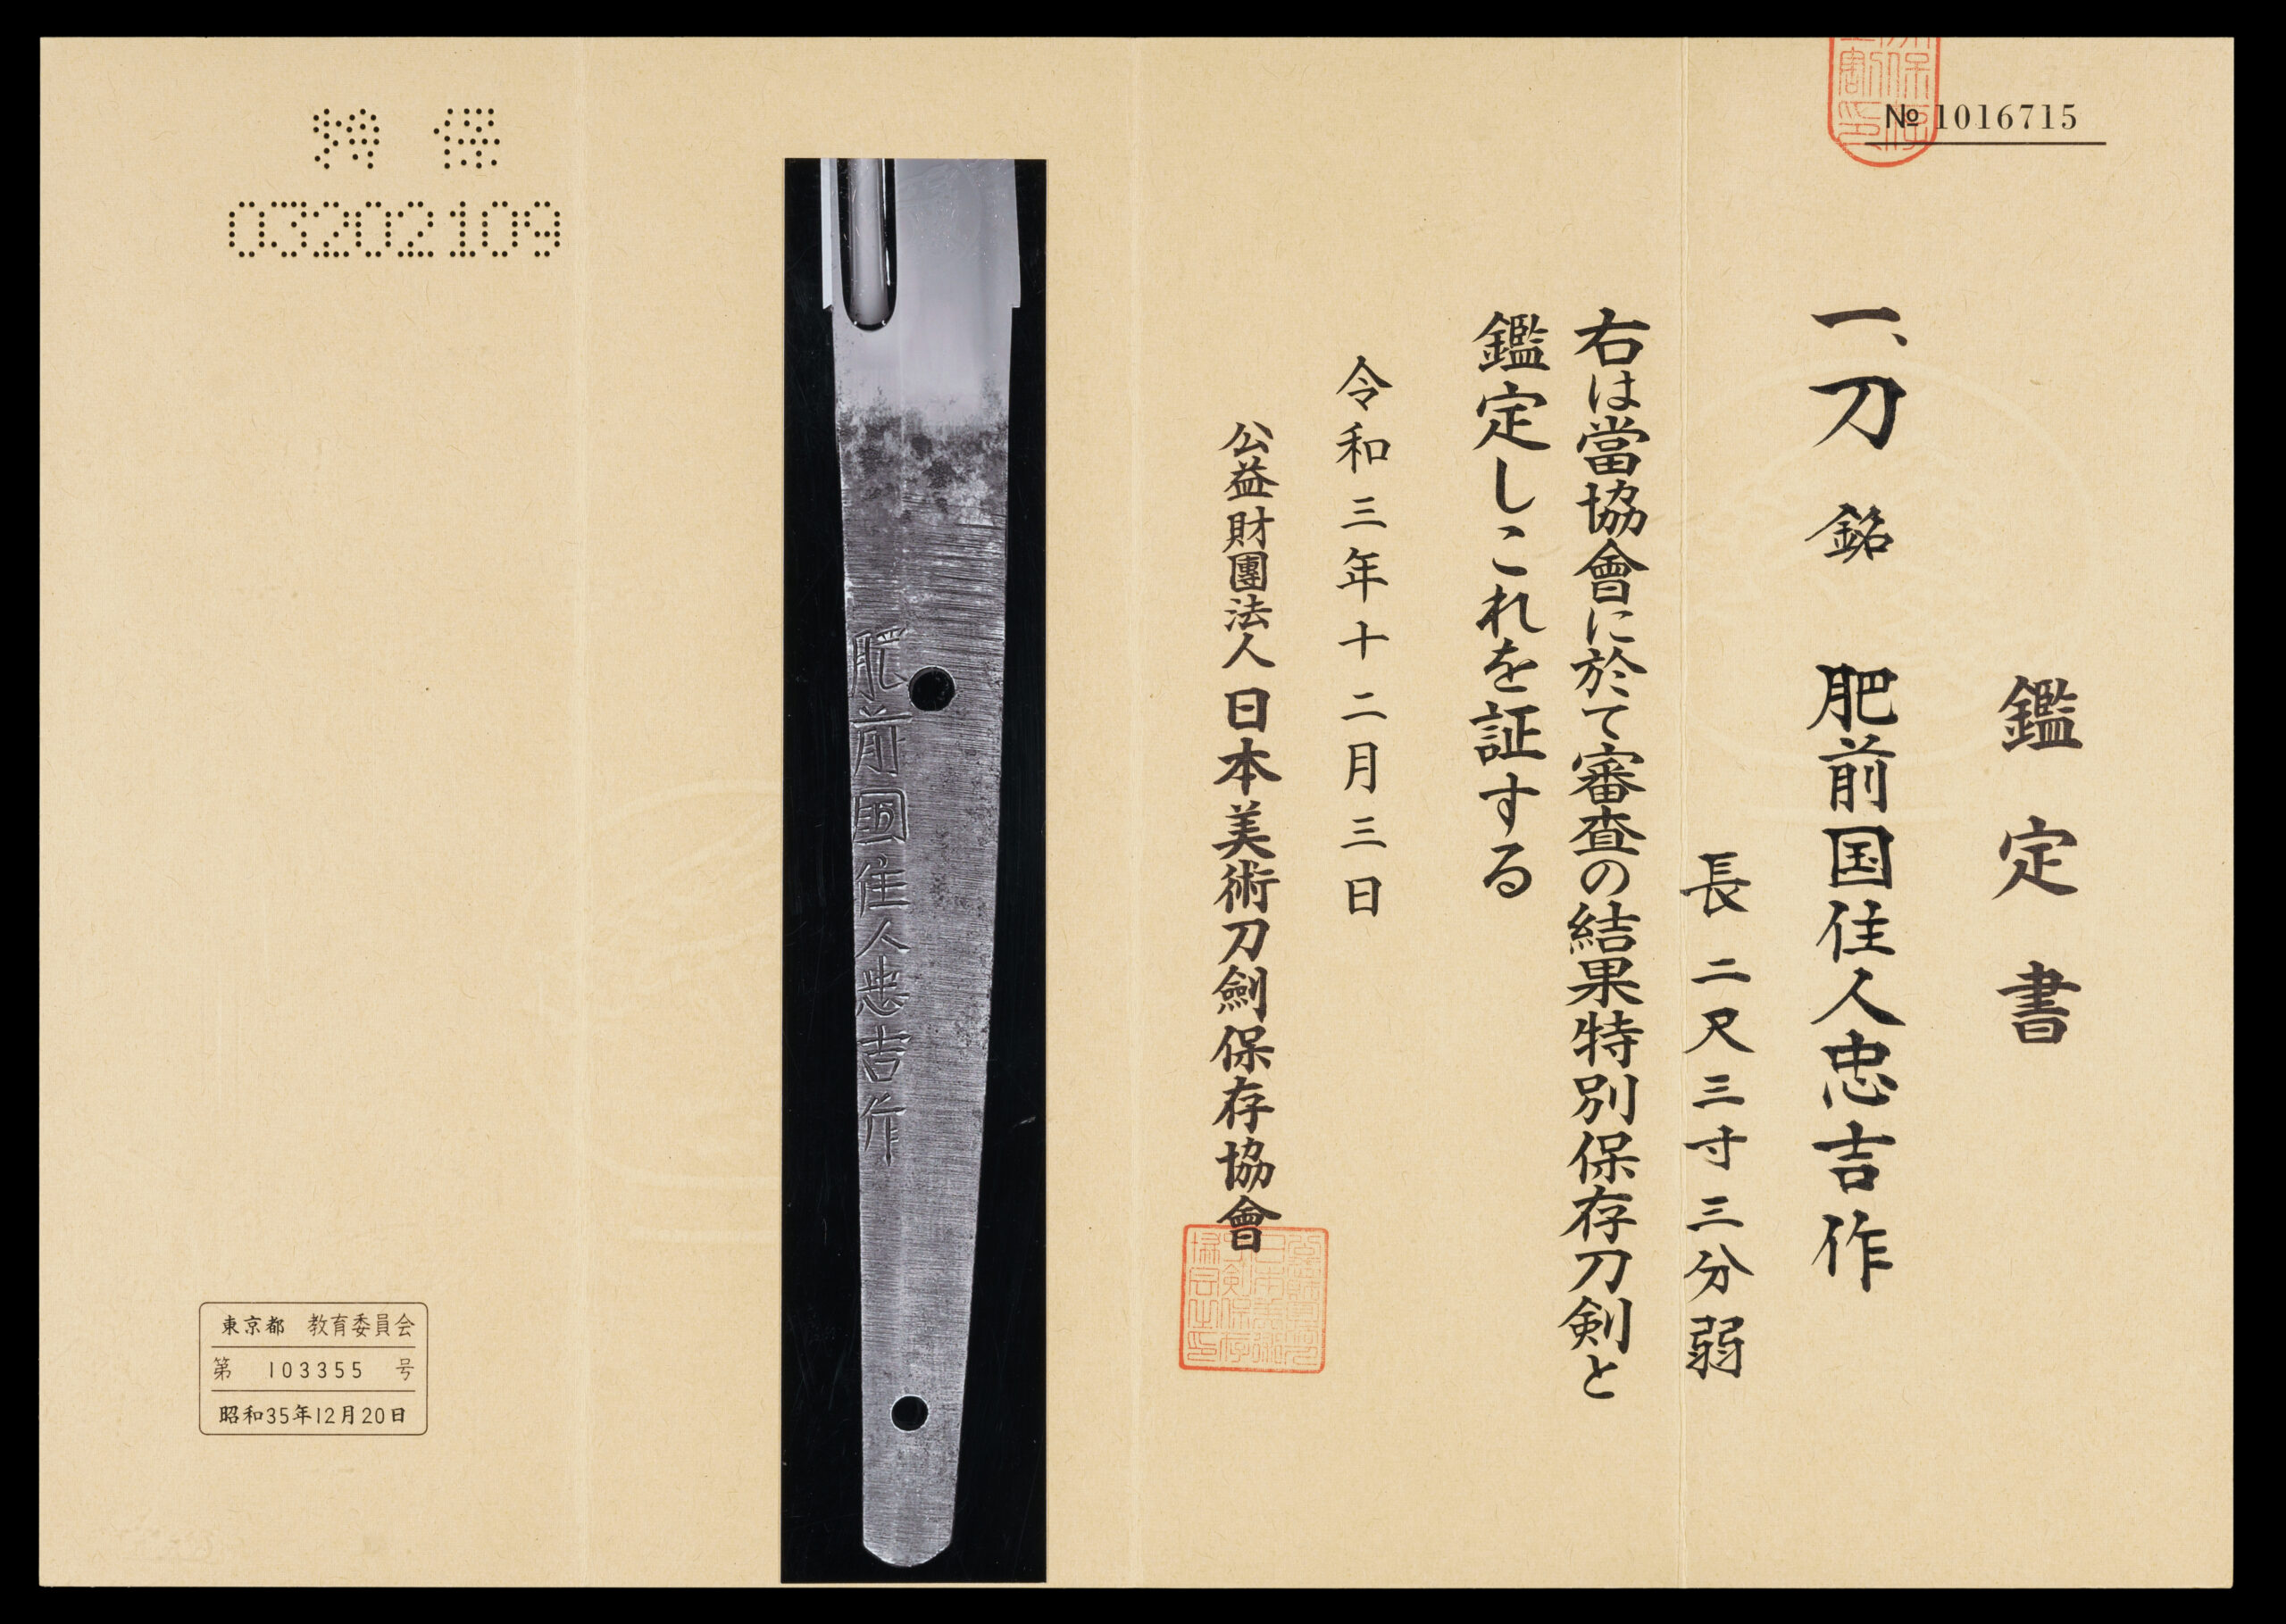 № 1016715
鑑定書
一、刀 銘 肥前国住人忠吉作
長 二尺三寸三分弱
右は當協會に於て審査の結果特別保存刀剣と
鑑定しこれを証する
令和三年十二月三日
公益財團法人 日本美術刀劍保存協會
肥前國住人忠吉作
特 保
03202109
東京都 教育委員会
第 103355 号
昭和35年12月20日